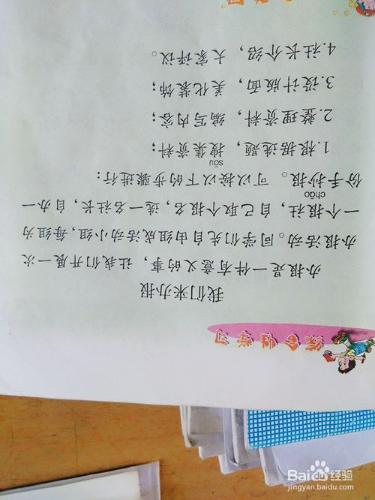 综合性学习
我们来办报
办报是一件有意义的事，让我们开展一次
办报活动。同学们先自由组成活动小组，每组为
一个报社，自己取个报名，选一名社长，自办一
chāo
份手抄报。可以按以下的步骤进行：
sōu
1.根据选题，搜集资料；
2.整理资料，编写内容；
3.设计版面，美化装饰；
4.社长介绍，大家评议。
Baidu经验
jingyan.baidu.com